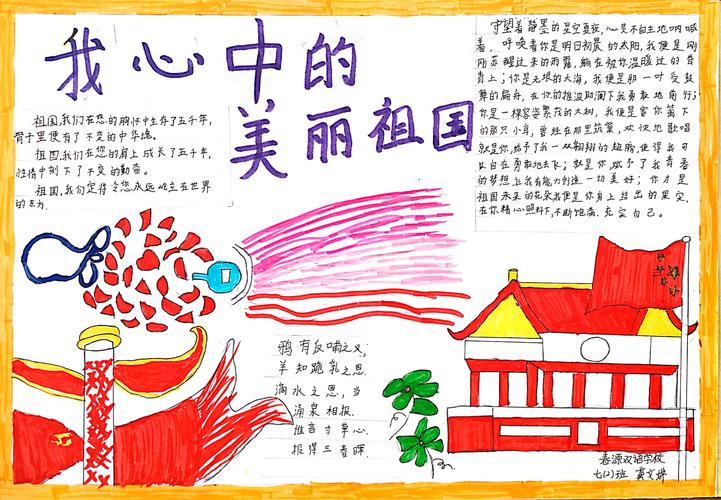 我心中的
美丽祖国
祖国,我们在您的胸怀中生存了五千年,
骨子里便有了不变的中华魂。
祖国,我们在您的肩上成长了五千年,
性情中刻下了不变的勤奋。
祖国,我们定将令您永远屹立在世界
的东方
守望着静墨的星空夏夜,心是不由主地呐喊
着,呼唤着你是明日初晨的太阳,我便是刚
刚苏醒过来的雨露,躺在被你温暖过的脊
背上;你是无垠的大海,我便是那一叶受鼓
舞的扁舟,在你的推波助澜下我勇敢地前行;
你是一棵容姿繁茂的大树,我便是窝你篱下
的那只小鸟,曾经在那里筑巢,欢快地歌唱
就是你,给予了我一双翱翔的翅膀,使得我可
以自在勇敢地去飞;就是你,赋予了我青春
的梦想,让我有能力创造一切美好;你才是
祖国未来的花朵我便是你身上结出的果实,
在你精心照料下,不断饱满,充实自己。
鸦有反哺之义,
羊知跪乳之恩.
滴水之恩,当
涌泉相报.
谁言寸草心.
报得三春晖.
春源双语学校
七(2)班 龚文